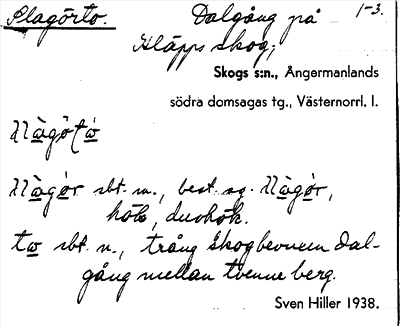 Slagörto. Dalgång på 1-3.
Kläpps skog,
Skogs s:n., Ångermanlands
södra domsagas tg., Västernorrl. l.
sbt. m., best. sg.
hök, duvhök.
sbt. n., trång skogbevuxen dal-
gång mellan tvenne berg.
Sven Hiller 1938.